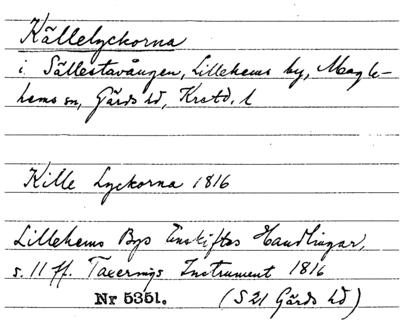 Källelyckorna
i Sällestavången, Lillehems by, Magle-
hems sn, Gärds hd, Krstd. l
Kille Lyckorna 1816
Lillehems Bys Enskiftes Handlingar,
s. 11 ff. Taxerings Instrument 1816
Nr 5351. (S 21 Gärds hd)